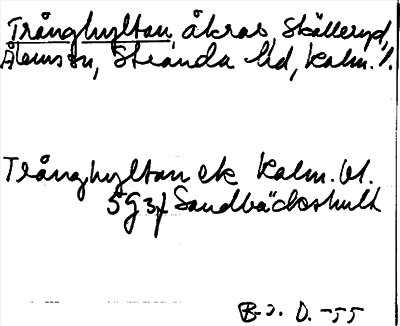 Trånghyltan, åkrar, Skälleryd,
Ålemsn, Stranda hd, Kalm. l.
Trånghyltan ek Kalm. bl.
5G3f Sandbäckshult
B-J. D. -55